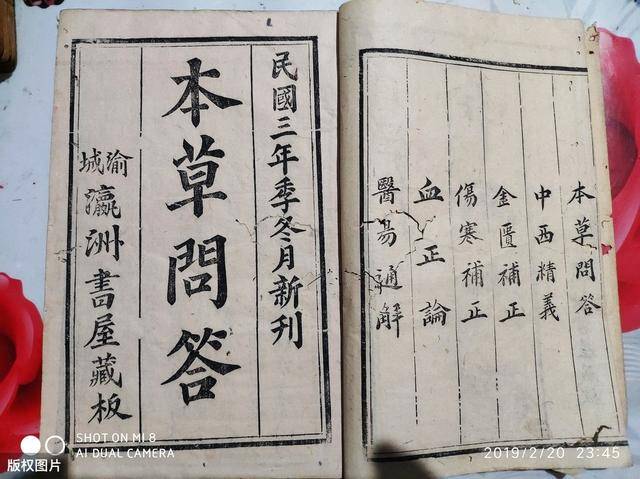 本草問答
中西精義
金匱補正
傷寒補正
血正論
醫易通解
民國三年季冬月新刊
本草問答
渝城瀛洲書屋藏板
SHOT ON MI 8
AI DUAL CAMERA
版权图片
2019/2/20 23:45